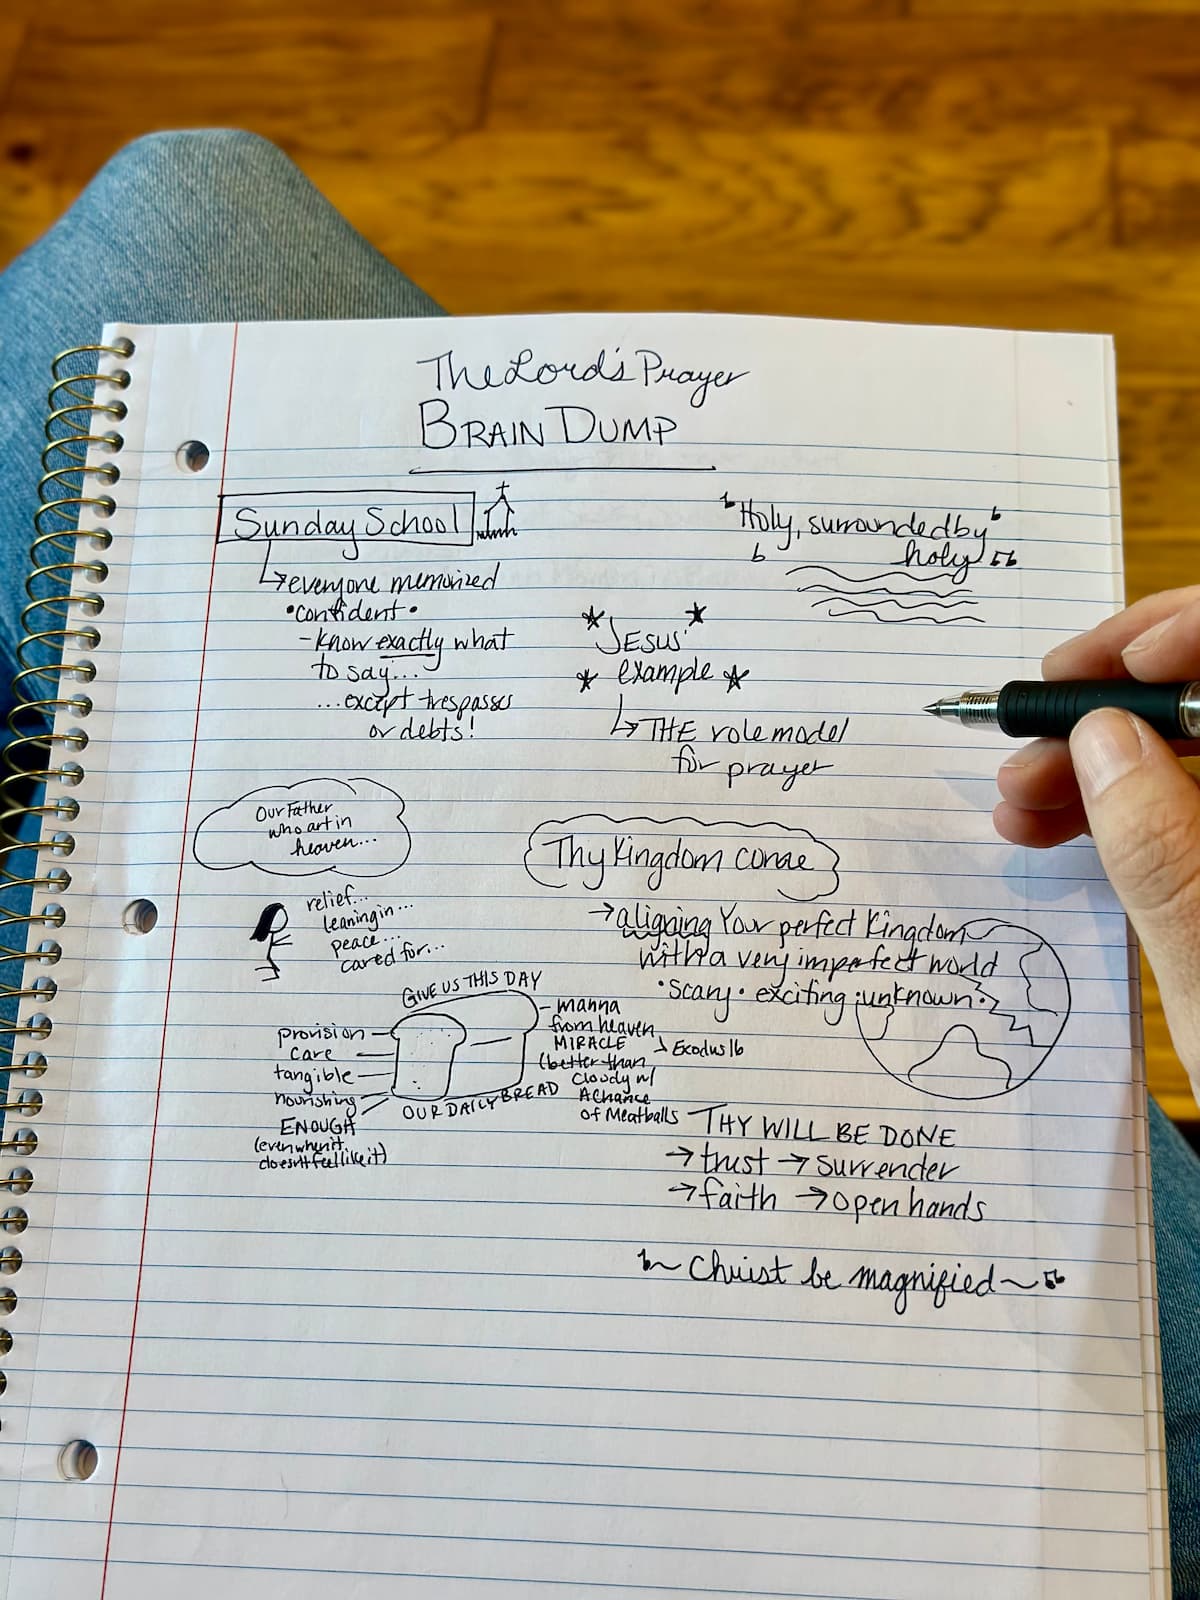 The Lord's Prayer
BRAIN DUMP
Sunday School
everyone memorized
•confident•
-know exactly what
to say...
...except trespasses
or debts!
"Holy, surrounded by
holy
JESUS'
example
THE role model
for prayer
Our Father
who art in
heaven...
relief...
leaning in...
peace...
cared for...
Thy Kingdom come
→aligning Your perfect Kingdom
with a very imperfect world
•scary• exciting •unknown•
GIVE US THIS DAY
provision
care
tangible
nourishing
ENOUGH
(even when it
doesn't feel like it)
OUR DAILY BREAD
-manna
from heaven
MIRACLE
Exodus 16
(better than
Cloudy w/
A Chance
of Meatballs
THY WILL BE DONE
→trust →surrender
→faith →open hands
~Christ be magnified~